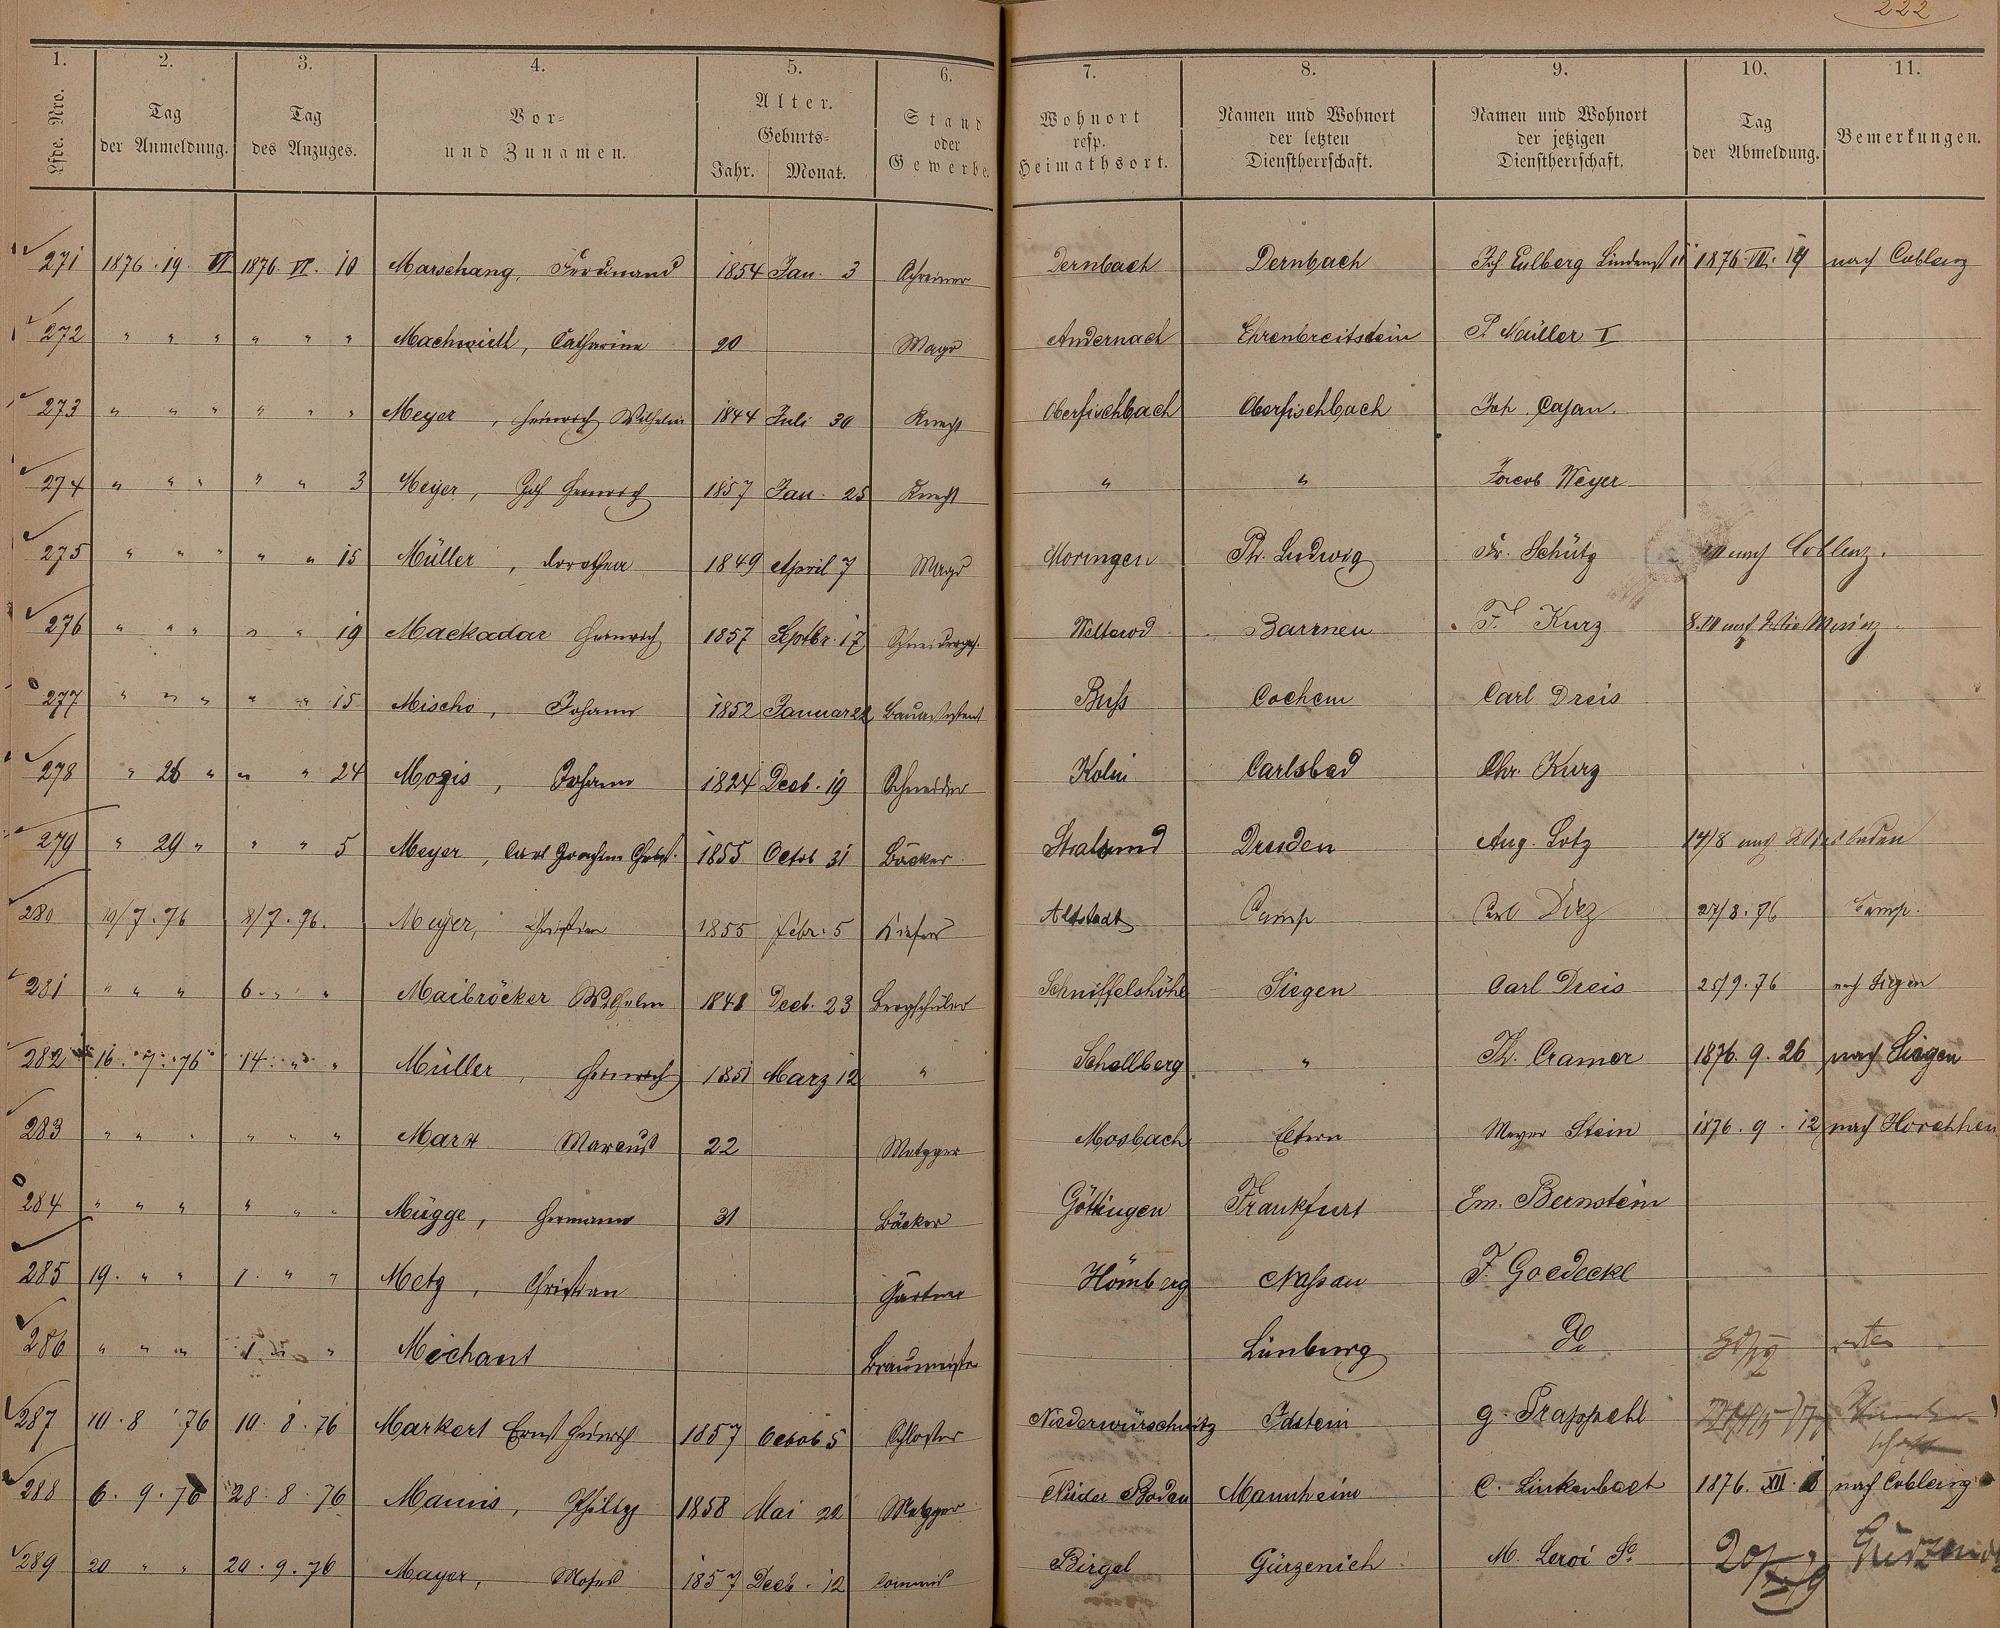 222
1. 2. 3. 4. 5. 6. 7. 8. 9. 10. 11.
Lfde. Nro. | Tag der Anmeldung. | Tag des Anzuges. | Vor- und Zunamen. | Alter. Geburts- Jahr. Monat. | Stand oder Gewerbe. | Wohnort resp. Heimathsort. | Namen und Wohnort der letzten Dienstherrschaft. | Namen und Wohnort der jetzigen Dienstherrschaft. | Tag der Abmeldung. | Bemerkungen.
271 1876 19 VI 1876 VI 10 Marschang, Ferdinand 1854 Jan. 3 Schreiner Dernbach Dernbach Joh Eulberg 1876 nach Coblenz
272 " " " " " " Catharine 20 Magd Andernach Ehrenbreitstein P. Müller I
273 " " " " " " Meyer, Heinrich Wilhelm 1844 Juli 30 Knecht Oberfischbach Oberfischbach Joh. Casan.
274 " " " " " 3 Meyer, Joh Heinrich 1857 Jan. 25 Knecht " " Jacob Weyer
275 " " " " " 15 Müller, Dorothea 1849 April 7 Magd Moringen Ph. Ludwig Fr. Schütz nach Coblenz.
276 " " " " " 19 Mackadar Heinrich 1857 Septbr. 17 Schneiderges. Welterod Barmen F. Kurz
277 " " " " " 15 Mischo, Johann 1852 Januar 22 Buss Cochem Carl Dreis
278 " 26 " " " 24 Mogis, Johann 1824 Decb. 19 Schneider Koln Carlsbad Chr. Kurz
279 " 29 " " " 5 Meyer, Carl Joachim 1855 Octob 31 Bäcker Stralsund Dresden Aug. Lotz 14/8 nach Wiesbaden
280 10/7. 76 8/7. 76. Meyer, Christian 1855 Febr. 5 Kiefer Altstadt Camp Carl Diez 27/8. 76 Camp.
281 " " " 6. " " Maibröcker Wilhelm 1848 Decb. 23 Bergschüler Schniffelshöhe Siegen Carl Dreis 25/9. 76 nach Siegen
282 16. 7. 76 14. " " Müller, Heinrich 1851 Marz 12 " Schellberg " Th. Cramer 1876. 9. 26 nach Siegen
283 " " " " " " Marx Marcus 22 Metzger Mosbach Eltern Meyer Stein 1876. 9. 12 nach
284 " " " " " " Mügge, Hermann 31 Bäcker Göttingen Frankfurt Em. Bernstein
285 19. " " 1. " " Metz, Christian Gärtner Hömberg Nassau F. Goedecke
286 " " " 1 " " Mechant Braumeister Limburg Do
287 10. 8 76 10. 8. 76 Markert Ernst Heinrich 1857 Octob 5 Schlosser Niederwürschnitz Idstein G. Trappehl
288 6. 9. 76 28. 8. 76 Mannis, Philipp 1858 Mai 22 Metzger Mannheim C. Linkenbach 1876. XII. nach Coblenz
289 20 " " 20. 9. 76 Mayer, Moses 1857 Decb. 12 Commis Birgel Gürzenich M. Leroi Gürzenich